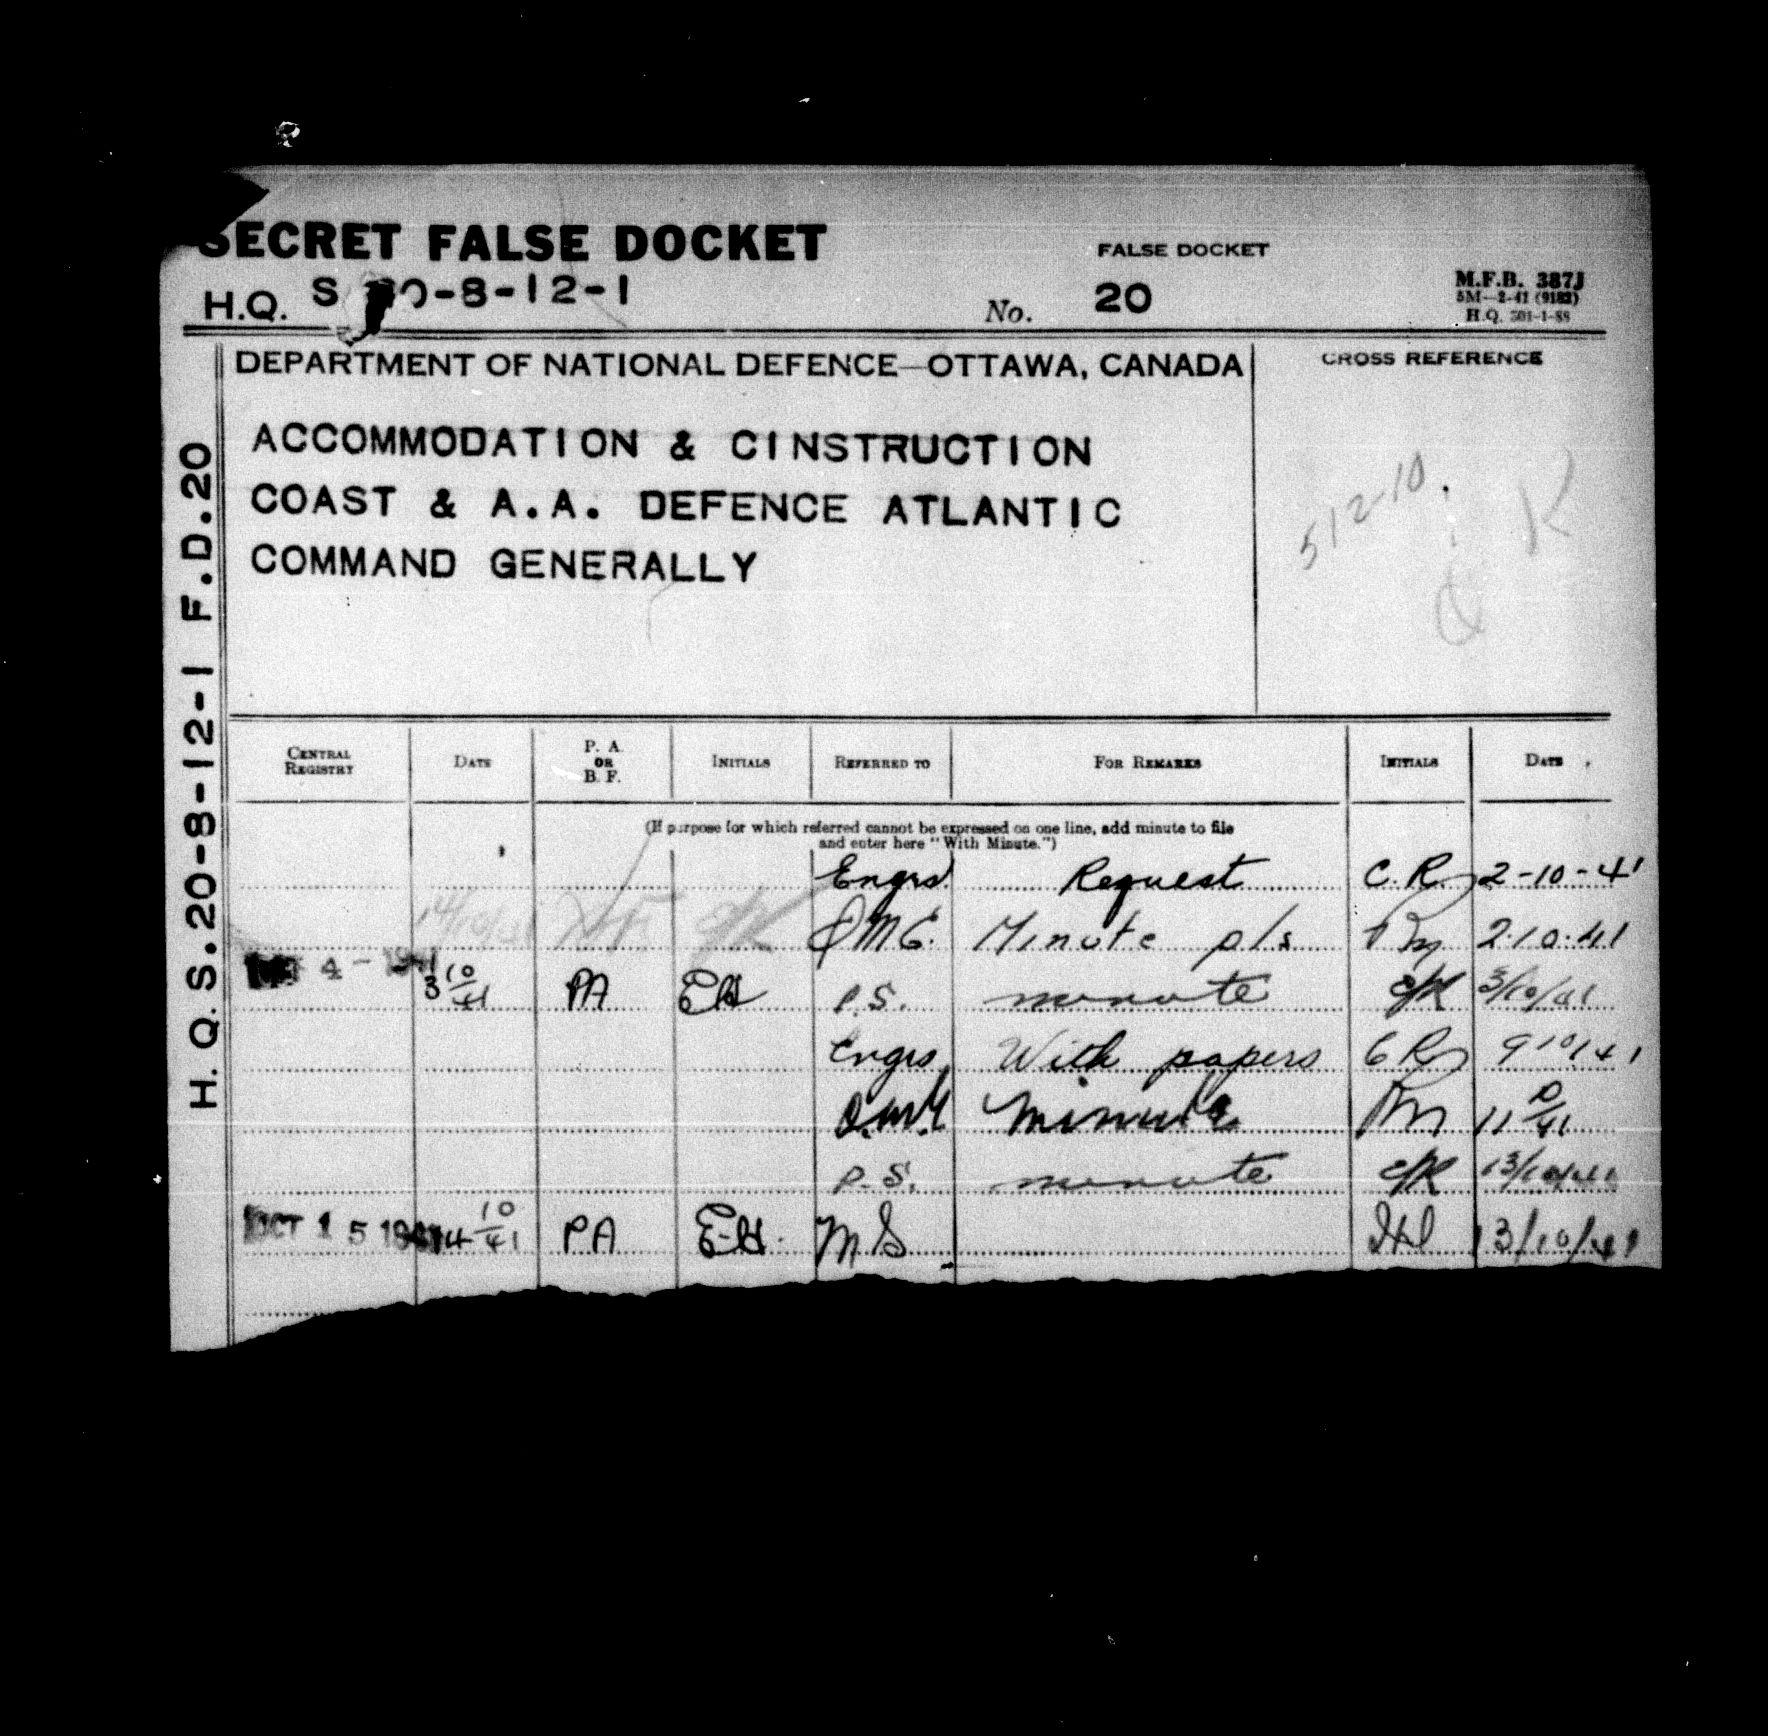 SECRET FALSE DOCKET
FALSE DOCKET
H.Q. S 20-8-12-1
No. 20
M.F.B. 387J
5M-2-41 (9182)
H.Q. 501-1-88
DEPARTMENT OF NATIONAL DEFENCE—OTTAWA, CANADA
CROSS REFERENCE
ACCOMMODATION & CINSTRUCTION
COAST & A.A. DEFENCE ATLANTIC
COMMAND GENERALLY
512-10.
H.Q.S.20-8-12-1 F.D.20
CENTRAL REGISTRY DATE P. A. OR B. F. INITIALS REFERRED TO FOR REMARKS INITIALS DATE
(If purpose for which referred cannot be expressed on one line, add minute to file
and enter here "With Minute.")
Engrs. Request C.R. 2-10-41
14/10/41 QMG. Minute pls 2.10.41
4 - 1941 3 10/41 PA EH P.S. minute 3/10/41
Engrs With papers CR 9/10/41
minute 11 10/41
P.S. minute 13/10/41
OCT 15 1941 14 10/41 PA EH. MS 13/10/41